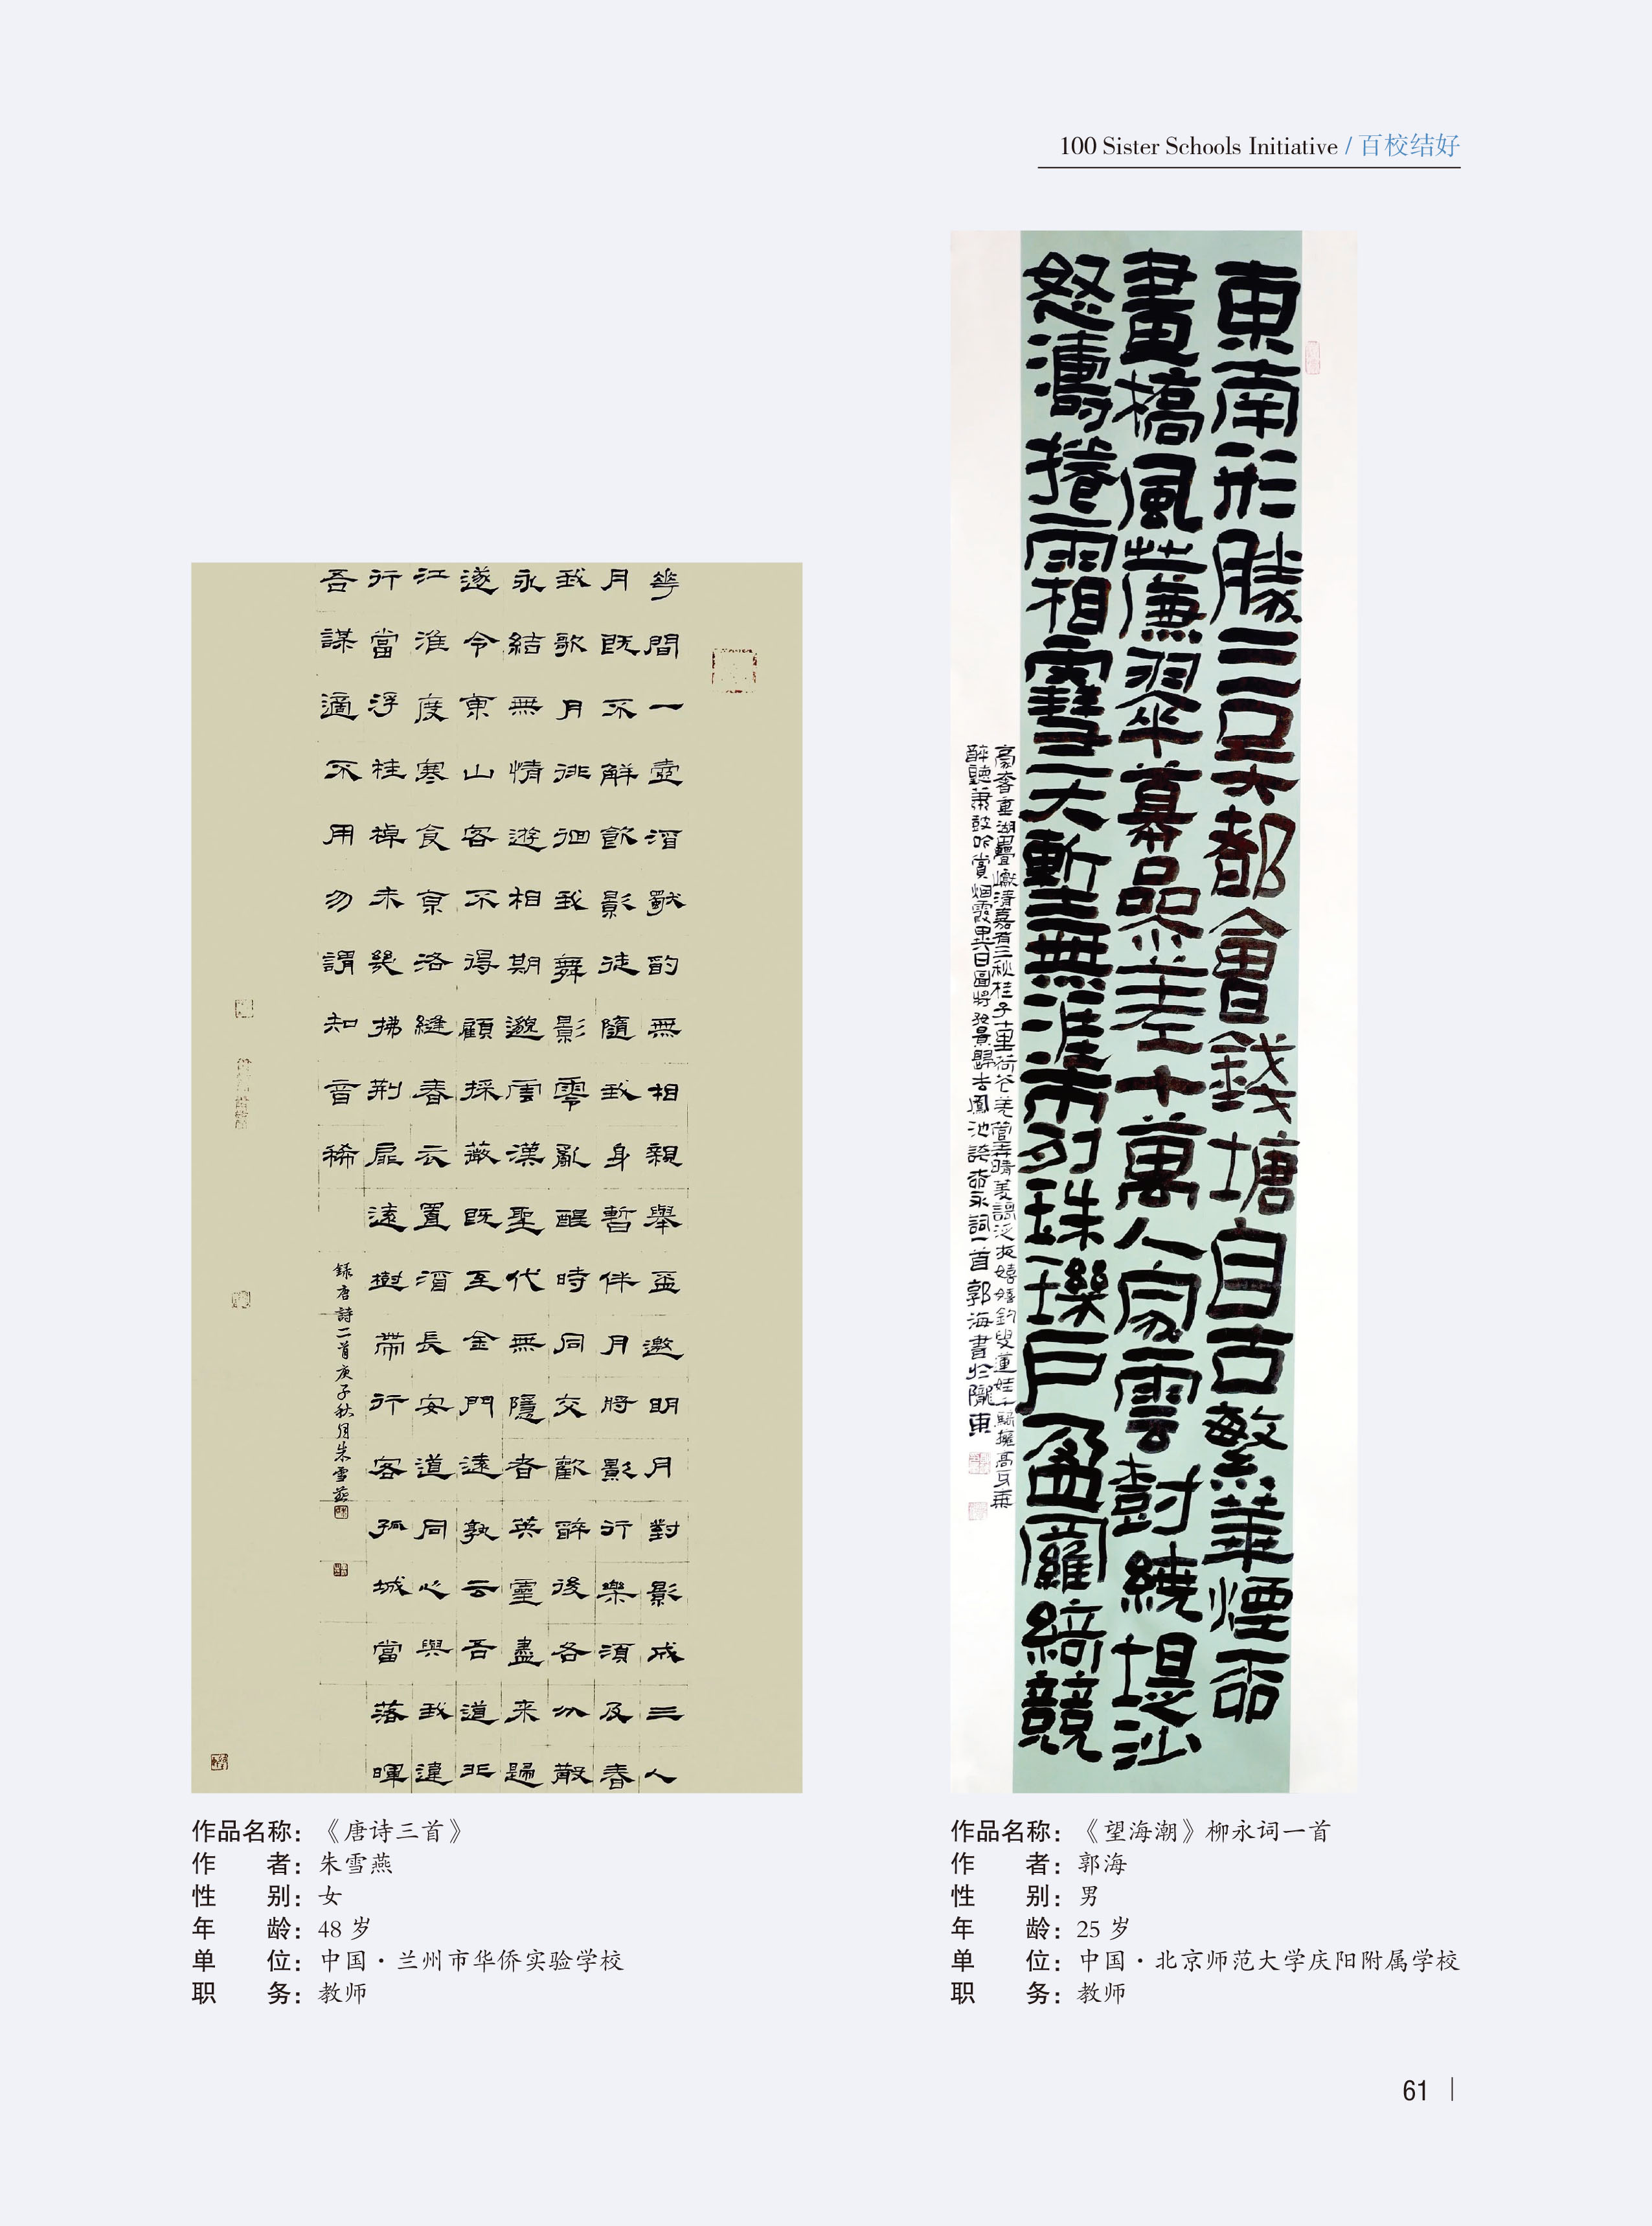 100 Sister Schools Initiative / 百校结好
華間一壺酒獨酌無相親舉盃邀明月對影成三人
月既不解飲影徒隨我身暫伴月將影行樂須及春
我歌月徘徊我舞影零亂醒時同交歡醉後各分散
永結無情遊相期邈雲漢聖代無隱者英靈盡来歸
遂令東山客不得顧採薇既至金門遠孰云吾道非
江淮度寒食京洛縫春衣置酒長安道同心與我違
行當浮桂棹未幾拂荆扉遠樹帶行客孤城當落暉
吾謀適不用勿謂知音稀
録唐詩二首庚子秋月朱雪燕
作品名称：《唐诗三首》
作　　者：朱雪燕
性　　别：女
年　　龄：48 岁
单　　位：中国·兰州市华侨实验学校
职　　务：教师
東南形勝三吳都會錢塘自古繁華煙柳
畫橋風簾翠幕參差十萬人家雲樹繞堤沙
怒濤捲霜雪天塹無涯市列珠璣戶盈羅綺競
豪奢重湖疊巘清嘉有三秋桂子十里荷花羌管弄晴菱謌泛夜嬉嬉釣叟蓮娃千騎擁高牙乘
醉聽簫鼓吟賞烟霞異日圖將好景歸去鳳池誇柳永詞一首郭海書於隴東
作品名称：《望海潮》柳永词一首
作　　者：郭海
性　　别：男
年　　龄：25 岁
单　　位：中国·北京师范大学庆阳附属学校
职　　务：教师
61